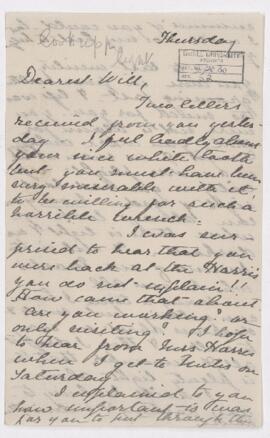 Thursday
Dearest Will,
Two letters
received from you yester-
day I feel badly about
your nice white tooth
but you must have been
very miserable with it
to be willing for such a
horrible wrench.
I was sur-
prised to hear that you
were back at the Harris
you do not explain!!
How came that about
are you working? or
only visiting? I hope
to hear from Mrs Harris
when I get to on
Saturday.
I explained to you
how important it was
for you to put through the